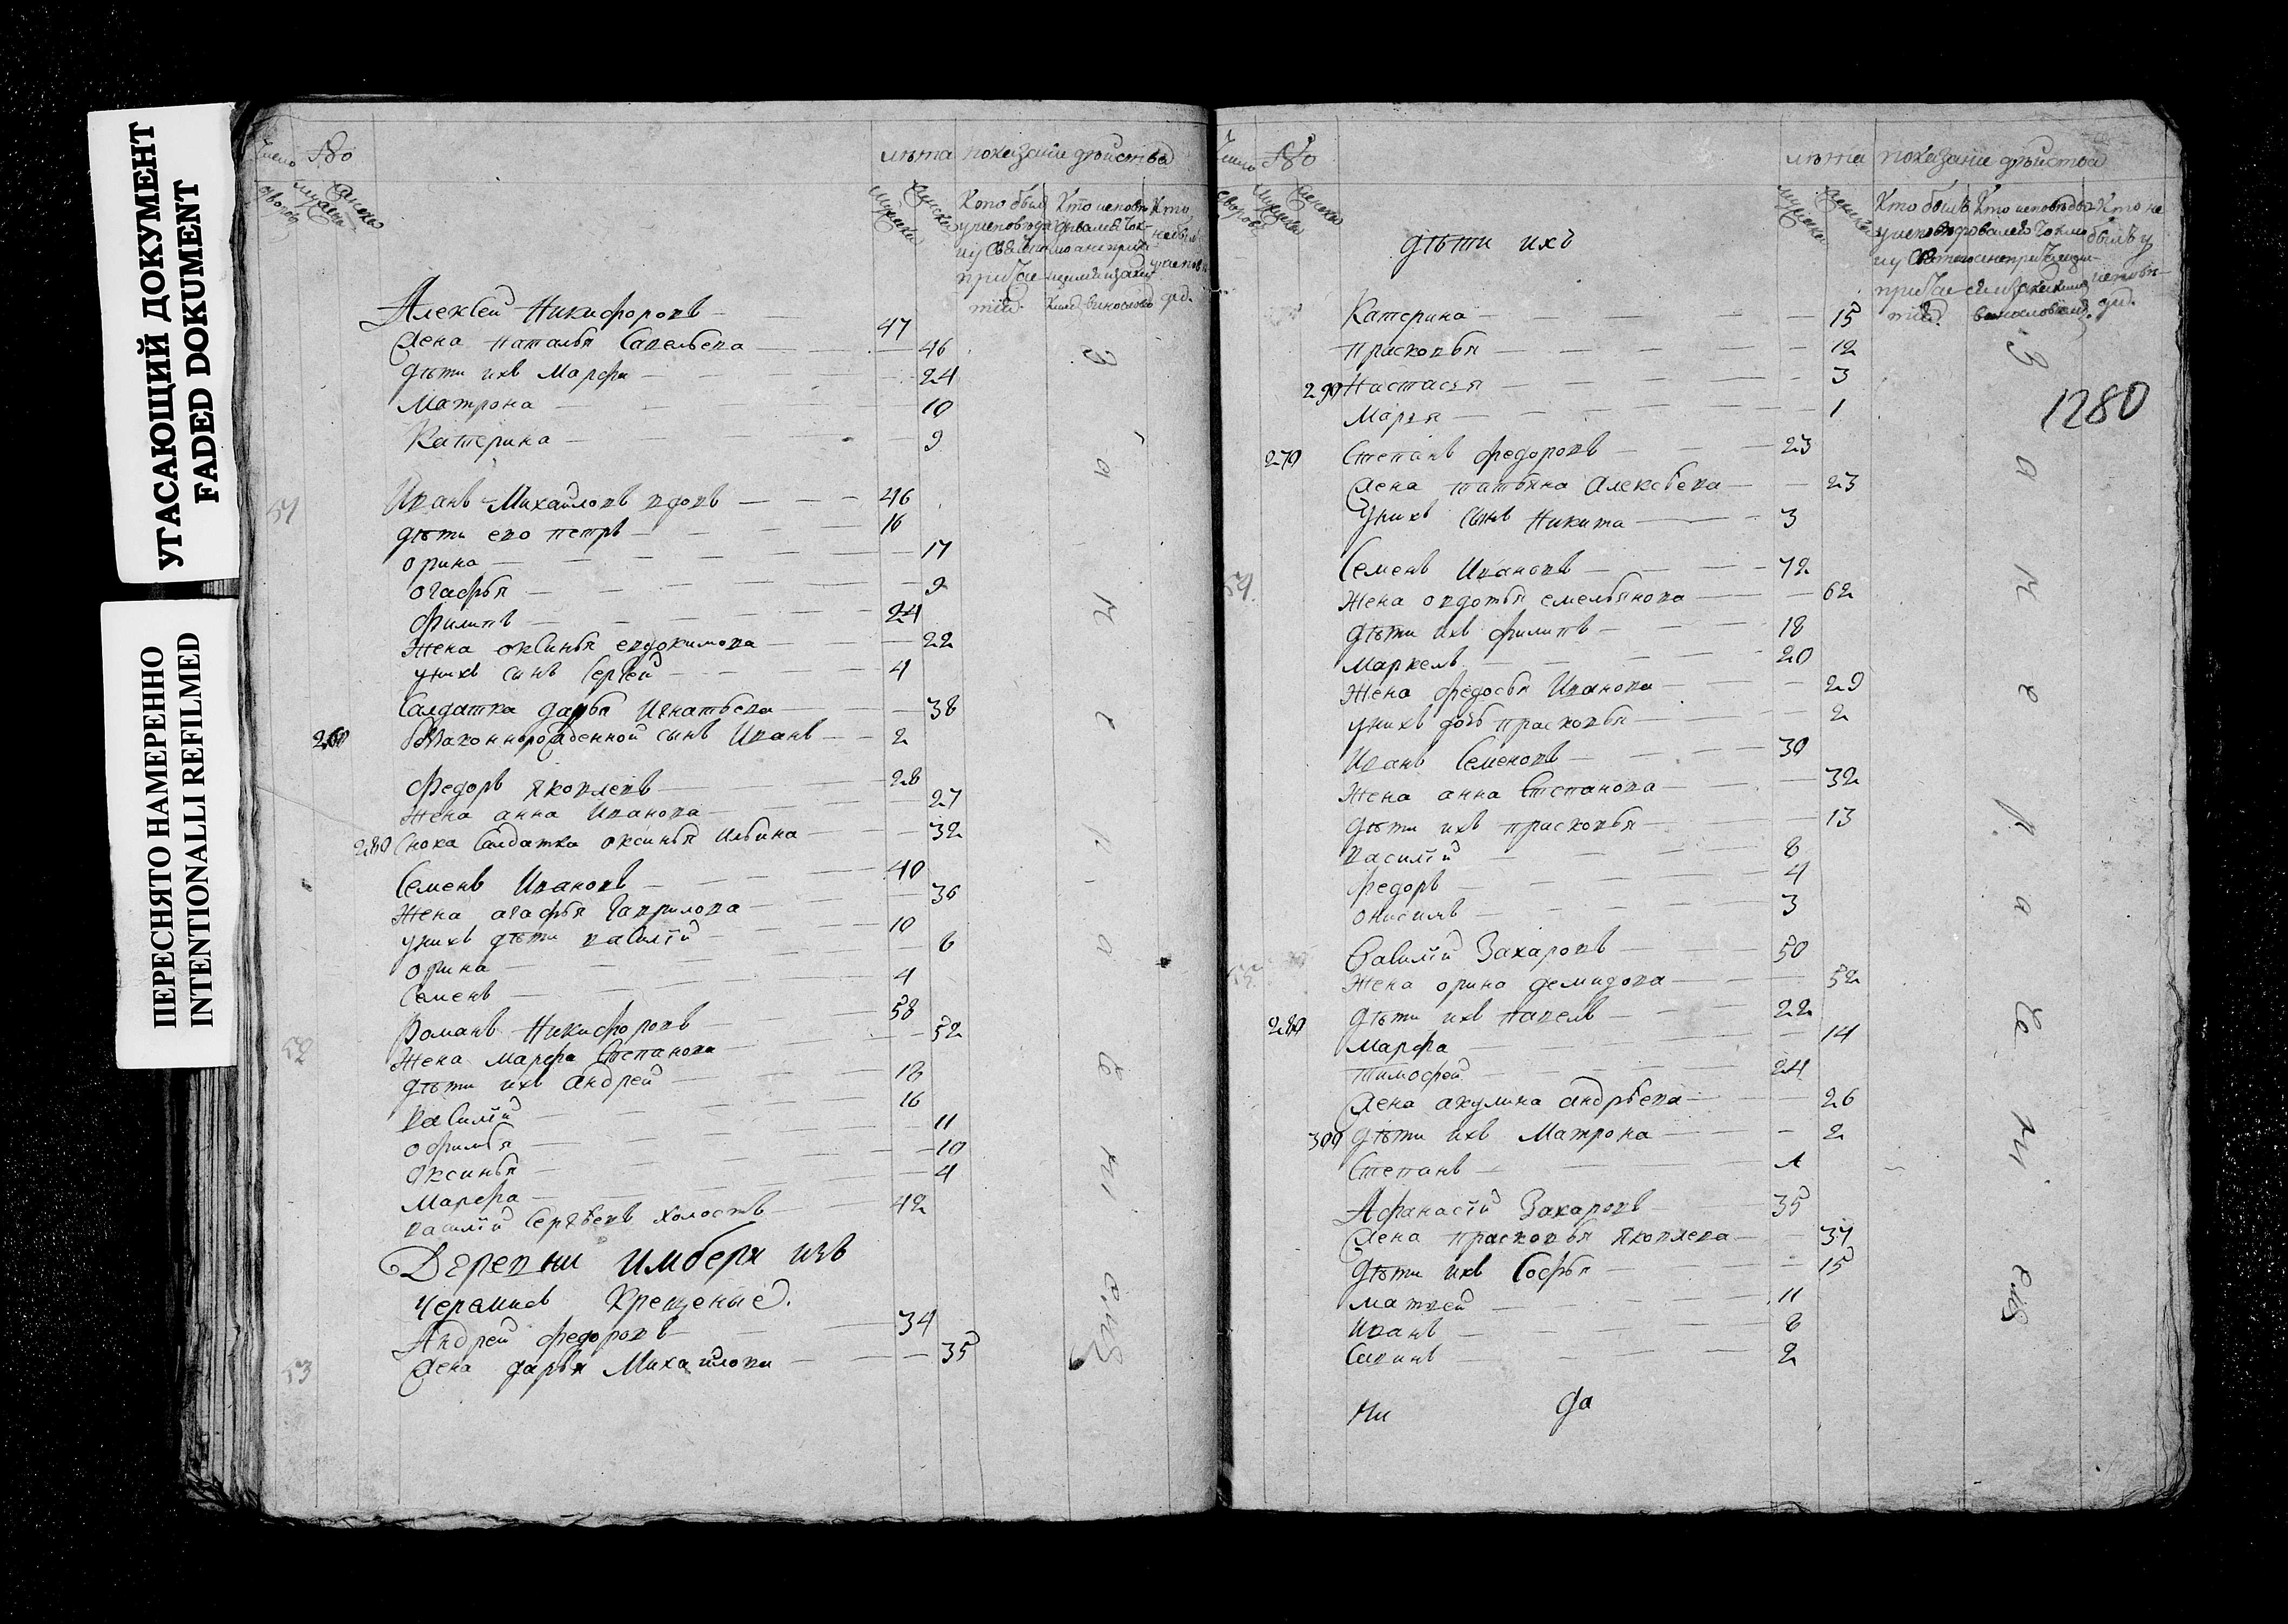 УГАСАЮЩИЙ ДОКУМЕНТ
FADED DOKUMENT
ПЕРЕСНЯТО НАМЕРЕННО
INTENTIONALLI REFILMED
Число № лѣта показание дѣйства
дворовъ мужеска женска мужеска женска
Алексѣй Никифоровъ 47
Жена наталья Савельева 46
дѣти ихъ Марфа 24
Матрона 10
Катерина 9
51 Иванъ Михаиловъ вдовъ 46
дѣти его петръ 16
орина 17
огафья 9
Филипъ 24
Жена оксинья евдокимова 22
у нихъ сынъ Сергей 4
Салдатка дарья Игнатьева 38
260 незаконнорожденной сынъ Иванъ 2
Федоръ яковлевъ 28
Жена анна Иванова 27
280 Сноха Салдатка оксинья Ильина 32
Семенъ Ивановъ 40
Жена агафья Гаврилова 36
у нихъ дѣти василий 10
орина 6
Семенъ 4
52 Романъ Никифоровъ 58
Жена Марфа Степанова 52
дѣти ихъ андрей 18
василий 16
офимья 11
Оксинья 10
Марфа 4
василий Сергѣевъ холостъ 42
Деревни имберя изъ
черемисъ Крещеные.
53 Андрей федоровъ 34
Жена дарья Михаилова 35
Число № лѣта показание дѣйства
дворовъ мужеска женска мужеска женска
дѣти ихъ
Катерина 15
прасковья 12
290 Настасья 3
1280
Марья 1
270 Степанъ федоровъ 23
Жена татьяна Алексѣева 23
у нихъ сынъ Никита 3
54 Семенъ Ивановъ 72
Жена овдотья емельянова 62
дѣти ихъ филипъ 18
Маркелъ 20
Жена федосья Иванова 29
у нихъ дочь прасковья 2
Иванъ Семеновъ 30
Жена анна Степанова 32
дѣти ихъ прасковья 13
василий 8
федоръ 4
онисимъ 3
Василий Захаровъ 50
Жена орина демидова 52
280 дѣти ихъ павелъ 22
Марфа 14
тимофей 24
Жена акулина андрѣева 26
300 дѣти ихъ Матрона 2
Степанъ 1
Афанасий Захаровъ 35
Жена прасковья яковлева 37
дѣти ихъ Софья 15
матвей 11
Иванъ 8
Савинъ 2
Ни да